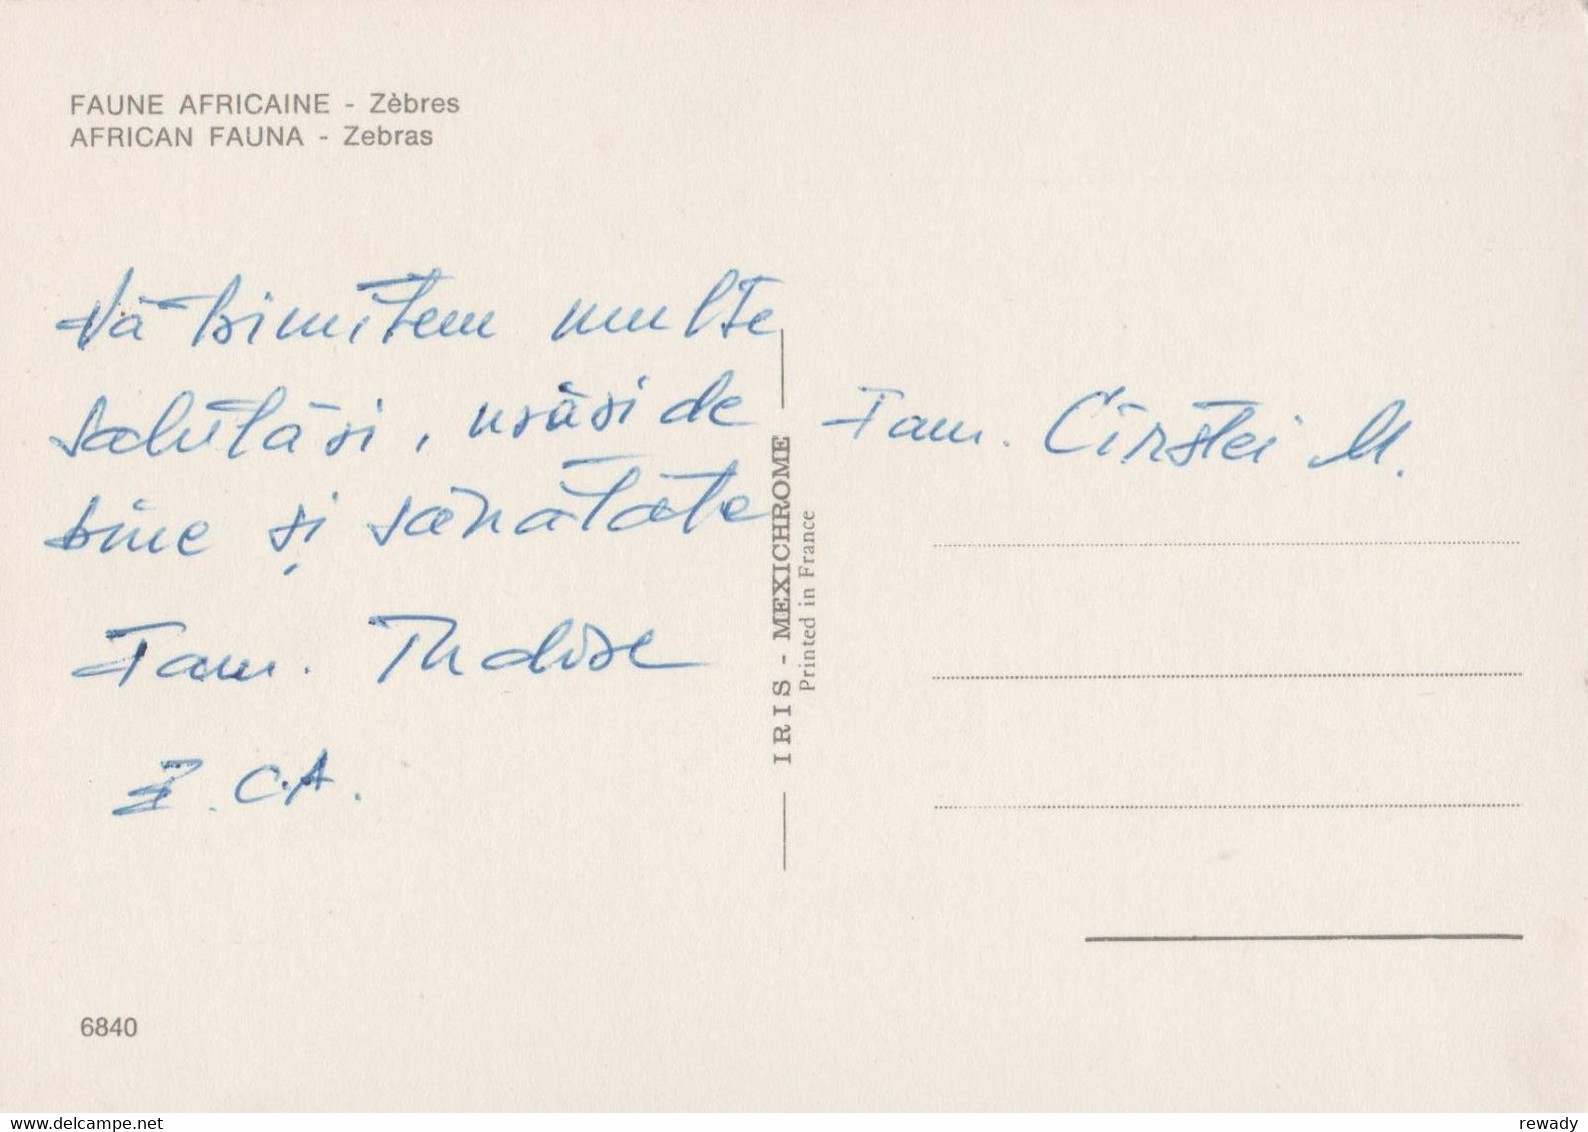 FAUNE AFRICAINE - Zèbres
AFRICAN FAUNA - Zebras
Vă trimitem multe
salutări, urări de
bine și sănătate
Fam.
C.A.
Fam. Cîrstei M.
IRIS - MEXICHROME
Printed in France
6840
www.delcampe.net
rewady